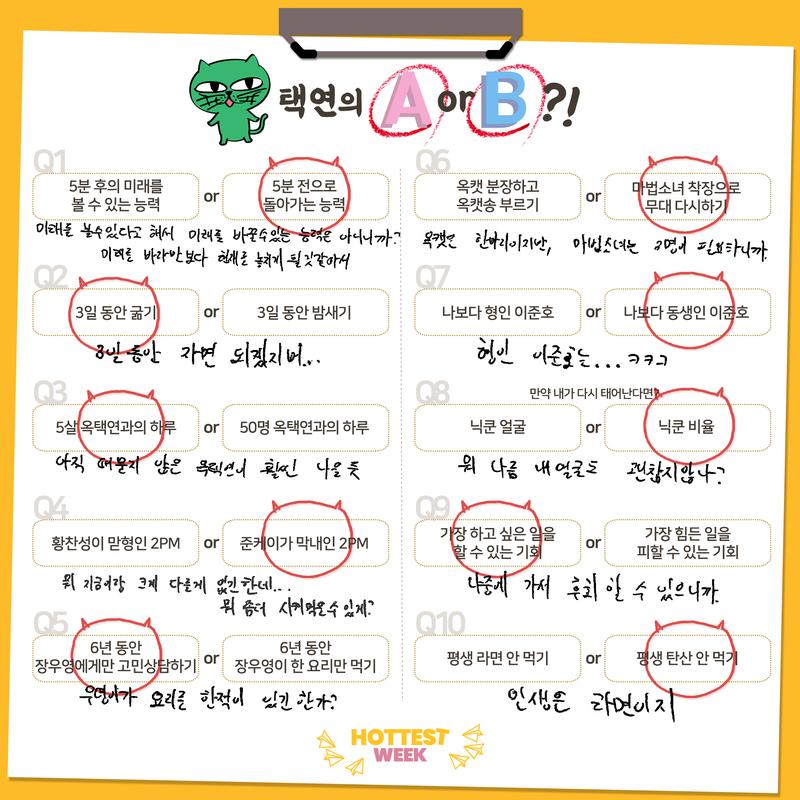 택연의 A or B?!
Q1
5분 후의 미래를
볼 수 있는 능력
or
5분 전으로
돌아가는 능력
미래를 볼수있다고 해서 미래를 바꿀수있는 능력은 아니니까?
미래를 바라만보다 현재를 놓치게 될것같아서
Q2
3일 동안 굶기
or
3일 동안 밤새기
3일 동안 자면 되겠지머...
Q3
5살 옥택연과의 하루
or
50명 옥택연과의 하루
아직 때묻지 않은 옥택연이 훨씬 나을 듯
Q4
황찬성이 맏형인 2PM
or
준케이가 막내인 2PM
뭐 지금이랑 크게 다를게 없긴한데...
뭔 좀더 시켜먹을수 있겠?
Q5
6년 동안
장우영에게만 고민상담하기
or
6년 동안
장우영이 한 요리만 먹기
우영이가 요리를 한적이 있긴 한가?
Q6
옥캣 분장하고
옥캣송 부르기
or
마법소녀 착장으로
무대 다시하기
옥캣은 한마리이지만, 마법소녀는 3명이 필요하니까.
Q7
나보다 형인 이준호
or
나보다 동생인 이준호
형인 이준호는... ㅋㅋㅋ
Q8
만약 내가 다시 태어난다면?
닉쿤 얼굴
or
닉쿤 비율
뭐 나름 내얼굴도 괜찮지않나?
Q9
가장 하고 싶은 일을
할 수 있는 기회
or
가장 힘든 일을
피할 수 있는 기회
나중에 가서 후회 할 수 있으니까.
Q10
평생 라면 안 먹기
or
평생 탄산 안 먹기
인생은 라면이지
HOTTEST
WEEK